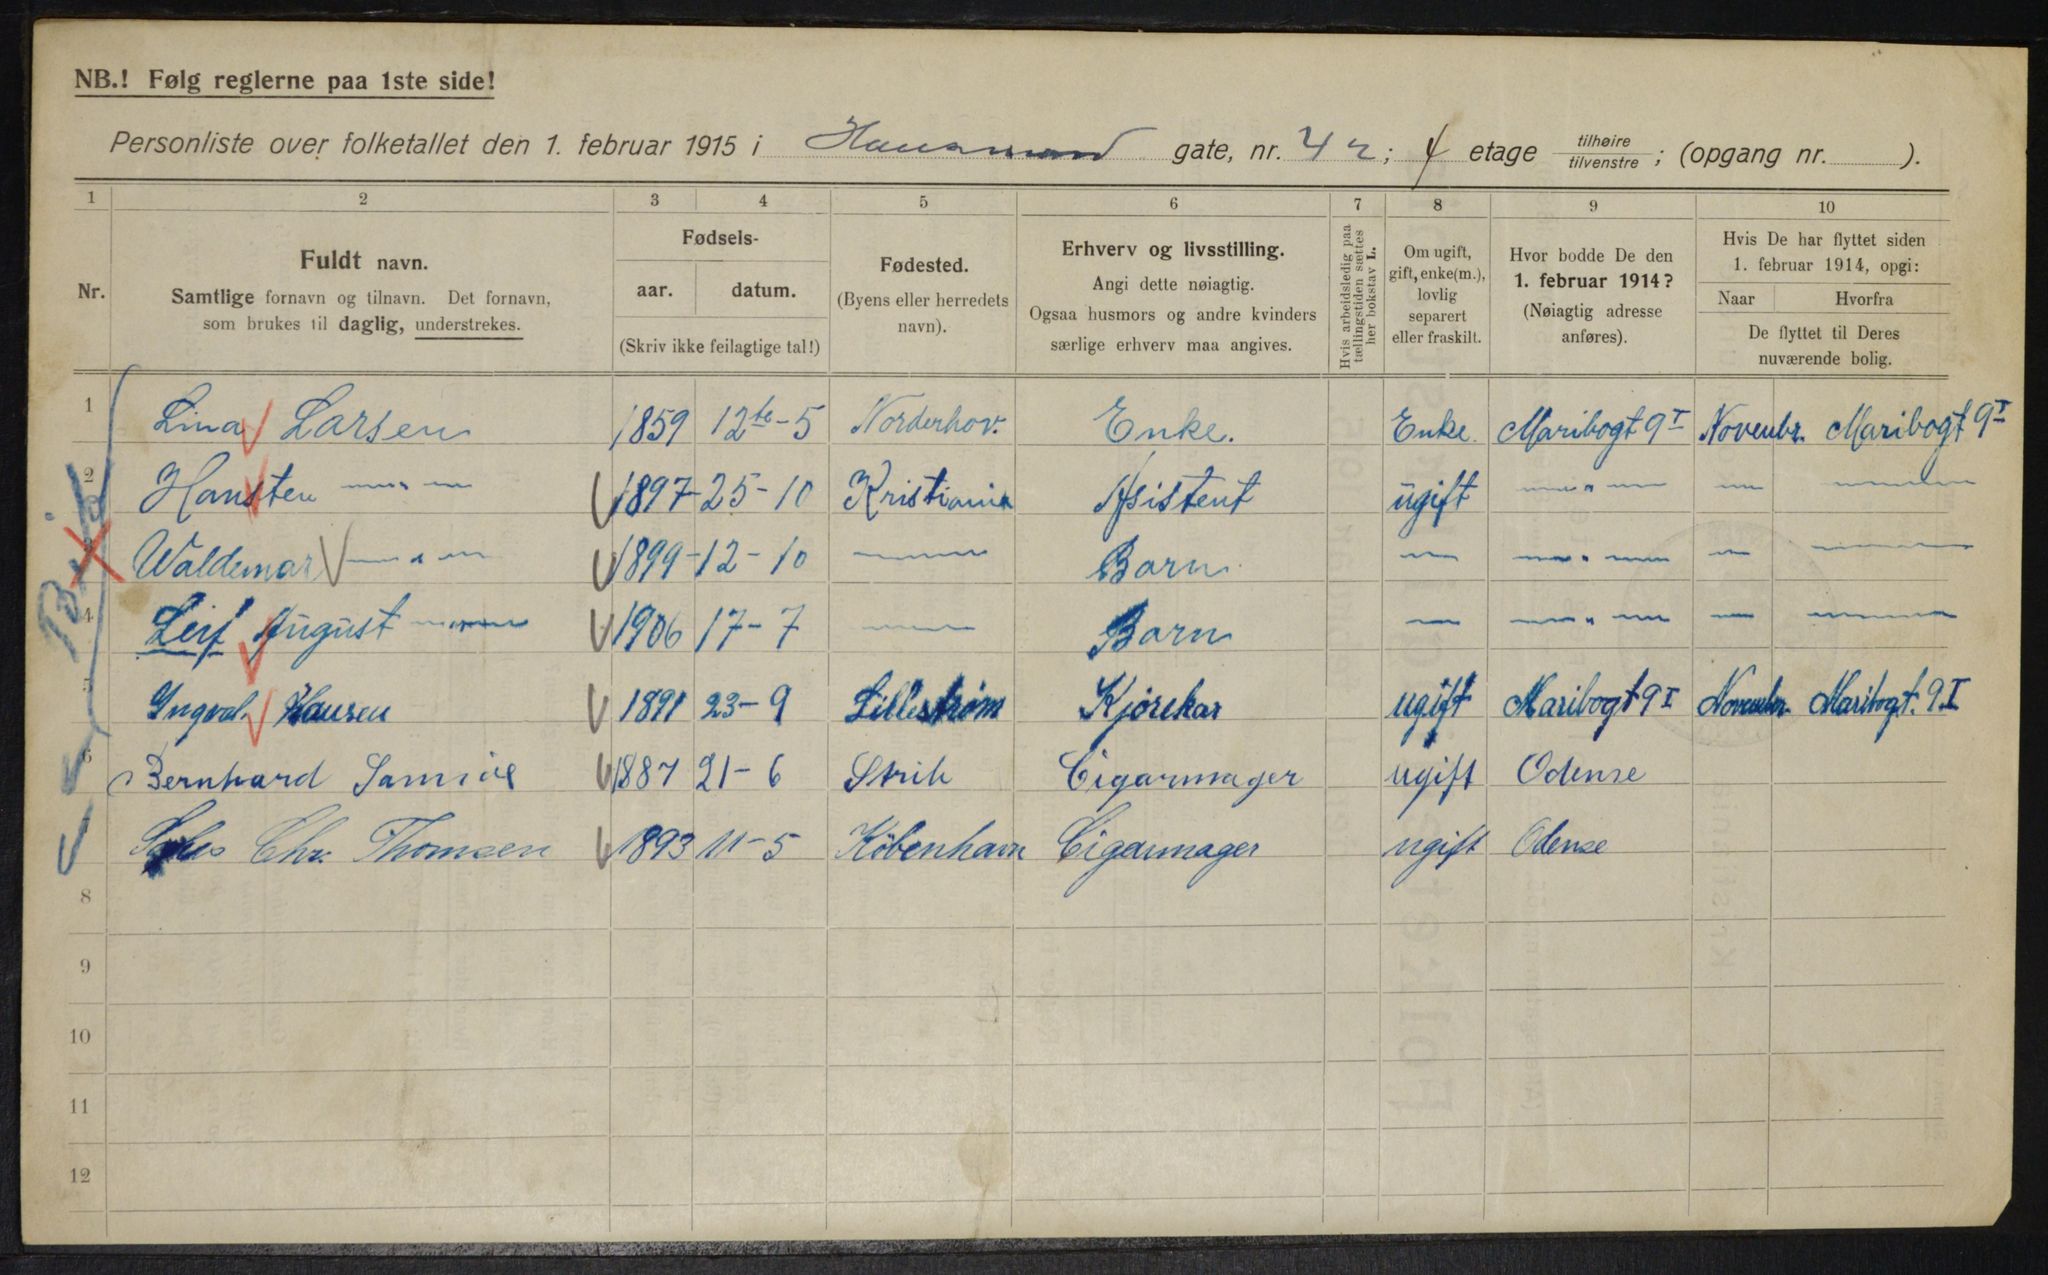 NB.! Følg reglerne paa 1ste side!
Personliste over folketallet den 1. februar 1915 i Hausmand gate, nr. 42; 4 etage tilhøire tilvenstre; (opgang nr. ).
1 2 3 4 5 6 7 8 9 10
Nr.
Fuldt navn.
Samtlige fornavn og tilnavn. Det fornavn,
som brukes til daglig, understrekes.
Fødsels-
aar. datum.
(Skriv ikke feilagtige tal!)
Fødested.
(Byens eller herredets
navn).
Erhverv og livsstilling.
Angi dette nøiagtig.
Ogsaa husmors og andre kvinders
særlige erhverv maa angives.
Hvis arbeidsledig paa
tællingstiden sættes
her bokstav L.
Om ugift,
gift, enke(m.),
lovlig
separert
eller fraskilt.
Hvor bodde De den
1. februar 1914?
(Nøiagtig adresse
anføres).
Hvis De har flyttet siden
1. februar 1914, opgi:
Naar Hvorfra
De flyttet til Deres
nuværende bolig.
1 Lina Larsen 1859 12te-5 Norderhov. Enke. Enke. Maribogt 9 I Novenbr. Maribogt 9 I
2 Hansten —"— 1897-25-10 Kristiania Asistent ugift —"— — —
3 Waldemar —"— 1899-12-10 — Barn — —"— — —
4 Leif August — 1906 17-7 — Barn — —"— — —
5 Ingval. Hansen 1891 23-9 Lillestrøm Kjørekar ugift Maribogt 9 I Novenbr Maribogt. 9.I
6 Bernhard 1887 21-6 Strib Cigarmager ugift Odense
Chr. Thomsen 1893 11-5 Köbenhavn Cigarmager ugift Odense
8
9
10
11
12